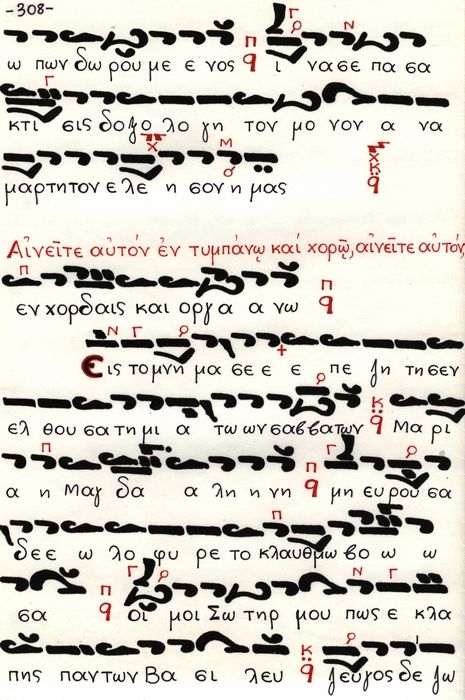 -308-
ω πων δω ρου με ε νος ι να σε πα σα
κτι σις δοξο λο γη τον μο νον α να
μαρτητον ε λε η σον η μας
Αἰνεῖτε αὐτόν ἐν τυμπάνῳ καί χορῷ, αἰνεῖτε αὐτόν,
εν χορδαις και οργα α νω
Εις το μνη μα σε ε ε πε ζη τη σεν
ελ θου σα τη μι α τω ων σαββατων Μα ρι
α η Μαγ δα α λη η νη μη ευ ρου σα
δε ε ω λο φυ ρε το κλαυθμω βο ω ω
σα οἴ μοι Σω τηρ μου πως ε κλα
πης παντων Βα σι λευ ζευγος δε ζω